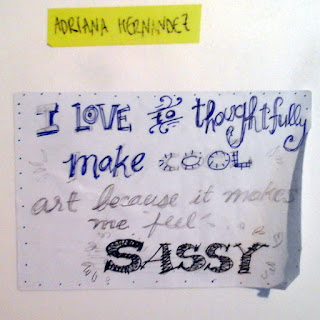 ADRIANA HERNANDEZ
I LOVE to thoughtfully
make COOL
art because it makes
me feel...
SASSY